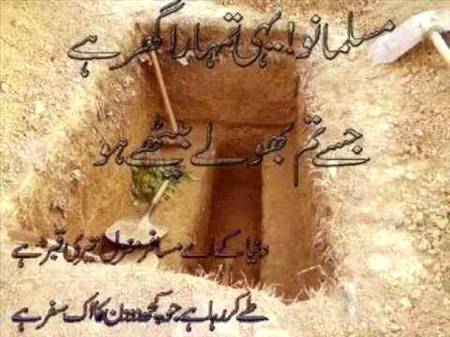 مسلمانو! یہی تمہارا گھر ہے
جسے تم بھولے بیٹھے ہو
دنیا کے اے مسافر منزل تیری قبر ہے
طے کر رہا ہے جو تو دو دن کا اک سفر ہے